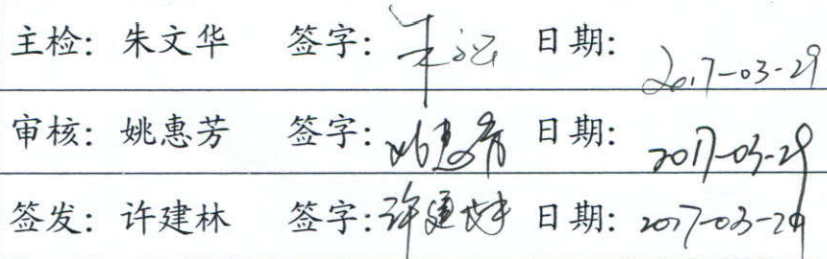 主检：朱文华 签字： 日期：2017-03-29
审核：姚惠芳 签字：姚惠芳 日期：2017-03-29
签发：许建林 签字：许建林 日期：2017-03-29